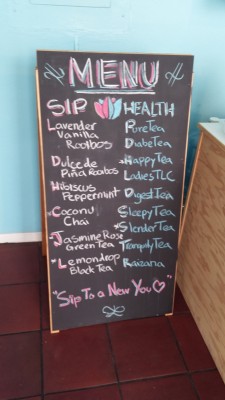 MENU
SIP HEALTH
Lavender
Vanilla
Rooibos
Dulce de
Piña Rooibos
Hibiscus
Peppermint
Coconut
Chai
Jasmine Rose
Green Tea
Lemondrop
Black Tea
PureTea
DiabeTea
HappyTea
LadiesTLC
DigestTea
SleepyTea
SlenderTea
TranquilyTea
Raizana
"Sip To a New You"